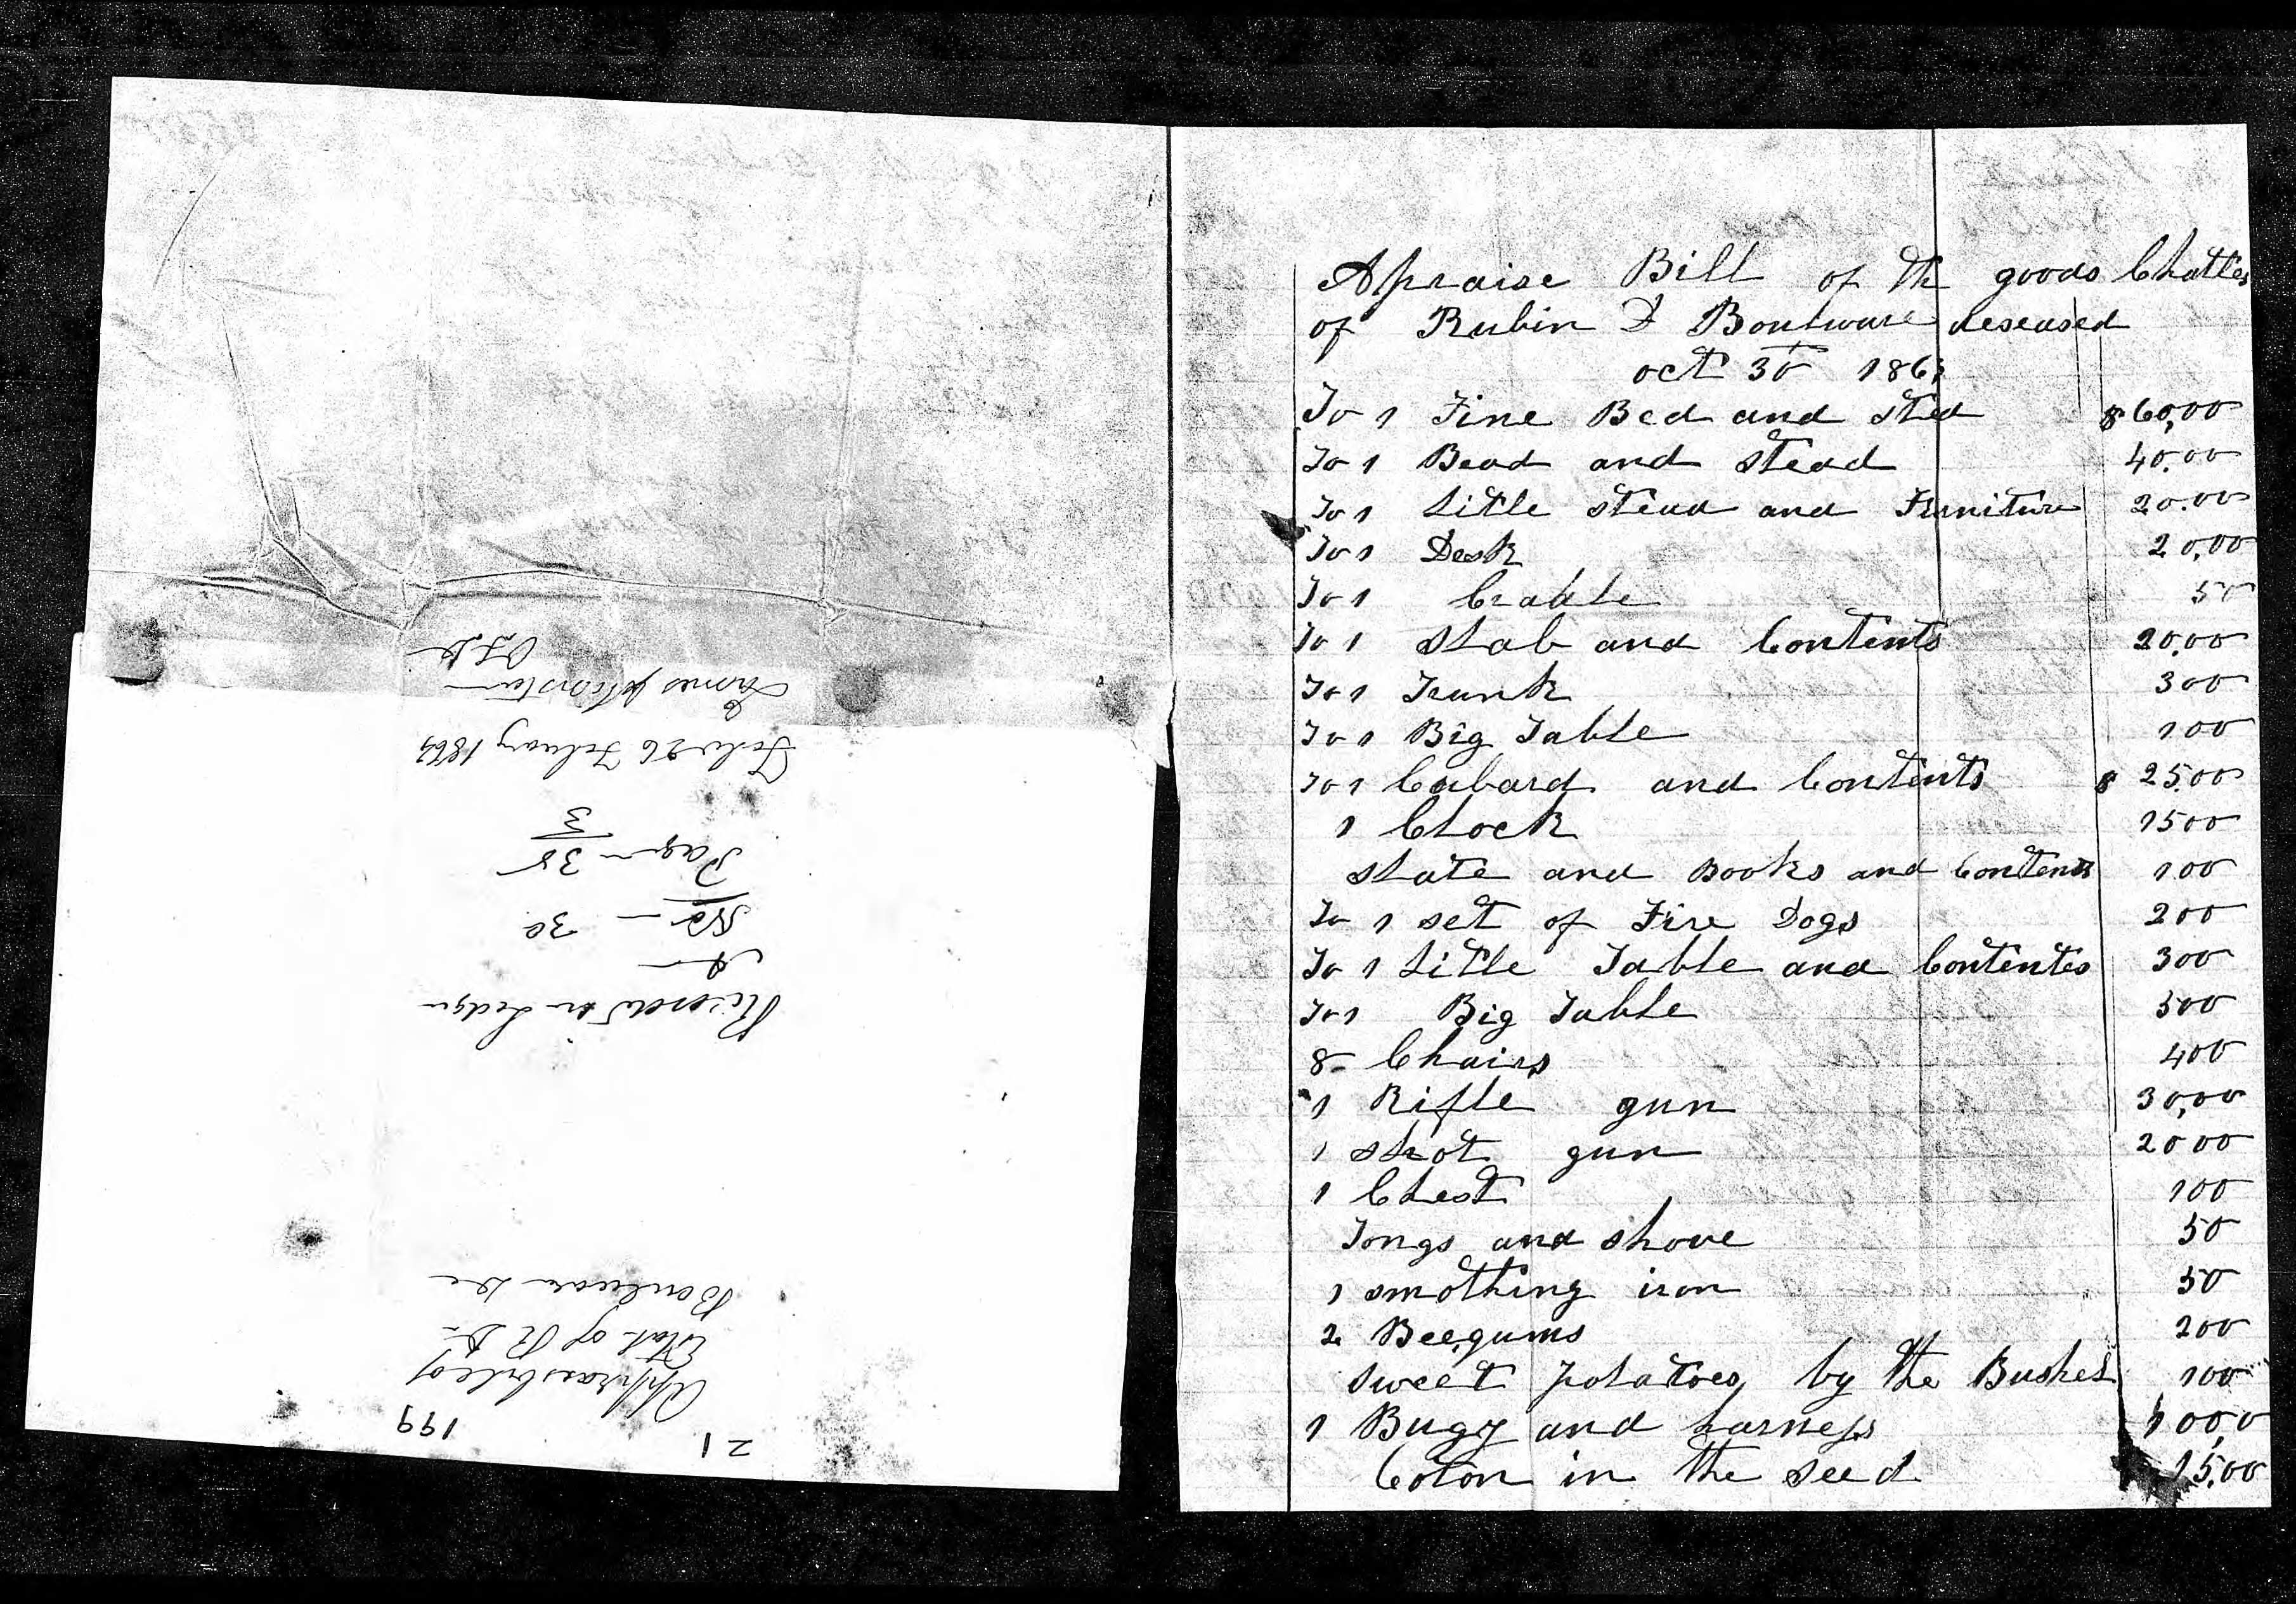 21 199
Apprasbill of
Estate of R D
Boulware Dec
Recorded in Ledger
A
No — 30
Page — 38
3
Filed 26 Febuary 1864
James Johnston
O F D
Apraise Bill of th goods Chattles
of Rubin D Boulware deseased
oct 30 1863
To 1 Fine Bed and sted $60,00
To 1 Bead and stead 40.00
To 1 Little stead and Furniture 20.00
To 1 Desk 20,00
To 1 Cradle 50
To 1 Slab and Contents 20,00
To 1 Trunk 300
To 1 Big Table 100
To 1 Cubard and Contents $ 25.00
1 Clock 1500
Slate and Books and Contents 100
To 1 set of Fire Dogs 200
To 1 Little Table and Contentes 300
To 1 Big Table 500
8 Chairs 400
1 Rifle gun 30,00
1 shot gun 2000
1 Chest 100
Tongs and shove 50
1 smothing iron 50
2 Beegums 200
sweet potatoes by the Bushel 100
1 Bugy and harness 100,0
Coton in the seed 15.00